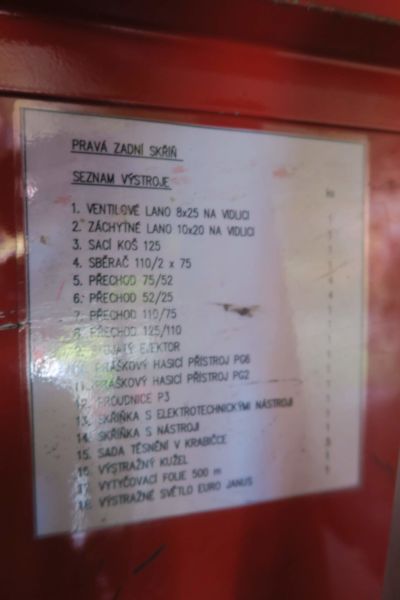 PRAVÁ ZADNÍ SKŘÍŇ
SEZNAM VÝSTROJE
1. VENTILOVÉ LANO 8x25 NA VIDLICI
2. ZÁCHYTNÉ LANO 10x20 NA VIDLICI
3. SACÍ KOŠ 125
4. SBĚRAČ 110/2 x 75
5. PŘECHOD 75/52
6. PŘECHOD 52/25
7. PŘECHOD 110/75
8. PŘECHOD 125/110
9. EJEKTOR
10. PRÁŠKOVÝ HASICÍ PŘÍSTROJ PG6
11. PRÁŠKOVÝ HASICÍ PŘÍSTROJ PG2
12. PROUDNICE P3
13. SKŘÍŇKA S ELEKTROTECHNICKÝMI NÁSTROJI
14. SKŘÍŇKA S NÁSTROJI
15. SADA TĚSNĚNÍ V KRABIČCE
16. VÝSTRAŽNÝ KUŽEL
17. VYTYČOVACÍ FOLIE 500 m
18. VÝSTRAŽNÉ SVĚTLO EURO JANUS